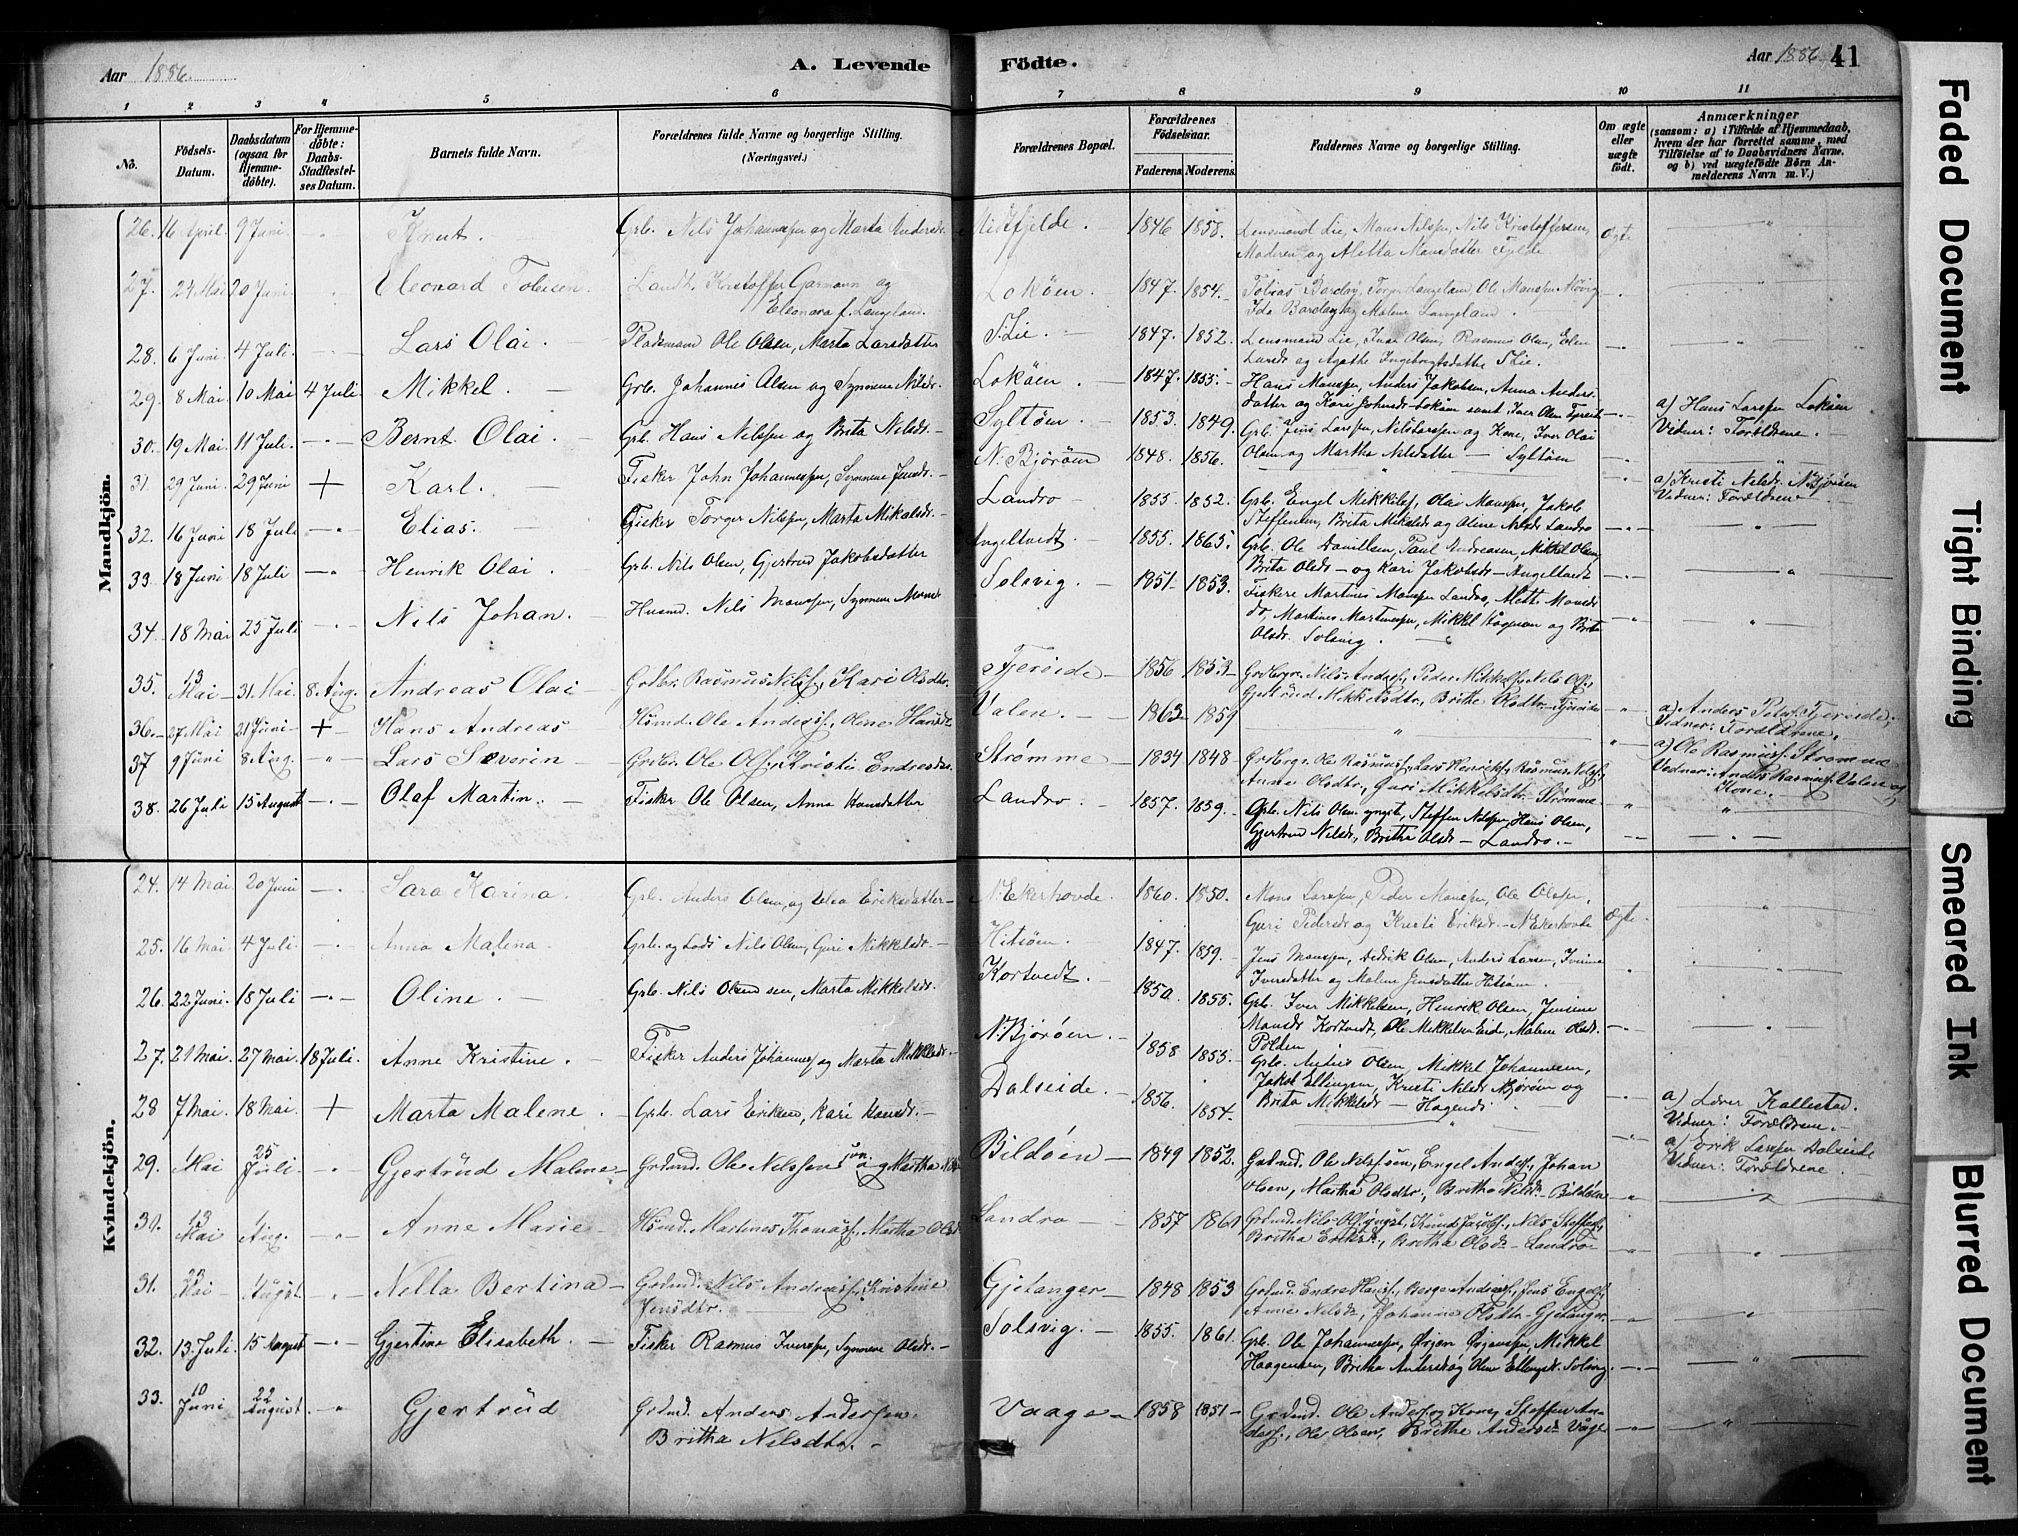 Aar 1886.
A. Levende
Födte.
Aar 1886. 41
1 2 3 4 5 6 7 8 9 10 11
No.
Födsels-Datum.
Daabsdatum (ogsaa for Hjemme-döbte).
For Hjemme-döbte: Daabs-Stadfæstel-ses Datum.
Barnets fulde Navn.
Forældrenes fulde Navne og borgerlige Stilling.
(Næringsvei.)
Forældrenes Bopæl.
Forældrenes Födselsaar.
Faderens Moderens
Faddernes Navne og borgerlige Stilling.
Om ægte eller uægte födt.
Anmærkninger
(saasom: a) i Tilfælde af Hjemmedaab, hvem der har forrettet samme, med Tilföielse af to Daabsvidners Navne, og b) ved uægtefödte Börn An-melderens Navn m. V.)
Mandkjön.
26. 16 April. 9 Juni Knut. Grb. Nils Johannessen og Marta Andersdr. Mistfjelde. 1846 1858. Lensmand Lie, Mons Nilssen, Nils Kristoffersen, Ægte
Moderen og Aletta Monsdatter Fjelde
27. 24 Mai 20 Juni Eleonard Tobisen. Landh. Kristoffer Garmann og Lokøen. 1847. 1854. Tobias Barclay, Torger Langeland, Ole Monssen Møvig
Eleonora f. Langeland. Ida Barclay og Malene Langeland.
28. 6 Juni 4 Juli Lars Olai. Pladsmand Ole Olsen, Marta Larsdatter S. Lie. 1847. 1852. Lensmand Lie, Ivar Olsen, Rasmus Olsen, Elen
Larsdr og Agathe Ingeborgtsdatter S. Lie.
29. 8 Mai 10 Mai 4 Juli Mikkel. Grb. Johannes Olsen og Synneve Nilsdr. Lokøen. 1847. 1855. Hans Monssen, Anders Jakobsen, Anna Anders-
datter og Kari Johnsdr Lokøen samt Iver Olsen a) Hans Larssen Lokøen
Vidner: Forældrene.
30. 19 Mai 11 Juli Bernt Olai. Grb. Hans Nilssen og Brita Nilsdr. Syltøen. 1853. 1849. Grb. Jens Larssen, Nils Larssen og Kone, Iver Olai
Olsen og Martha Nilsdatter Syltøen
31. 29 Juni 29 Juni + Karl. Fisker John Johannessen, Synneve Jensdr. N. Bjørøen 1848. 1856. a) Kristi Nilsdr. N. Bjørøen
Vidner: Forældrene
32. 16 Juni 18 Juli Elias. Fisker Torger Nilssen, Marta Mikalsdr. Landro 1855. 1852. Grb. Engel Mikkelsf, Olai Monssen, Jakob
Steffensen, Brita Mikalsdr og Oline Nilsdr Landro
33. 18 Juni 18 Juli Henrik Olai. Grb. Nils Olsen, Gjertrud Jakobsdatter Angeltvedt. 1855. 1865. Grb. Ole Danielsen, Paul Andreasen, Mikkel Olsen,
Brita Olsdr og Kari Jakobsdr Angeltvedt
34. 18 Mai 25 Juli Nils Johan. Husmd. Nils Monssen, Synneve Monsdr Solsvig. 1851. 1853. Fiskere Martinus Monssen Landro, Alette Monsdr
do, Martines Martinessen, Mikkel Haagensen og Brita
Olsdr. Solsvig.
35. 13 Mai 31 Mai. 8 Aug. Andreas Olai Grdbr. Rasmus Nilsf, Kari Olsdtr. Tjeroide 1856 1853 Grdbrgr. Nils Andersf, Peder Mikkelsf, Nils Olsf,
Gjertrüd Mikkelsdtr, Brithe Tjeroide
36. 27 Mai 21 Juni + Hans Andreas Hsmd. Ole Andersf., Oline Hansdr Valen. 1863 1859 a) Anders Peters. Tjeroide,
Vidner: Forældrene.
37 9 Juni 8 Aug. Lars Severin Grdbr. Ole Olsf., Kristi Endresdtr. Strømme 1834 1848 Grdbrgr. Ole Rasmusf, Lars Henriksf, Rasmus Nilsf,
Anne Olsdtr, Guri Mikkelsdtr Strømme a) Ole Rasmusf. Strømme
Vidner: Anders Rasmusf. Valen og
Kone.
38. 26 Juli 15 August Olaf Martin. Fisker Ole Olsen, Anna Hansdatter Landro. 1857. 1859. Grb. Nils Olsen yngste, Steffen Nilssen, Hans Olsen,
Gjertrud Nilsdr, Brithe Olsdr Landro.
Kvindekjön.
24. 14 Mai 20 Juni Sara Karina. Grb. Anders Olsen og Eriksdatter N. Ekerhovde. 1860. 1850. Mons Larssen, Peder Monssen, Ole Olssen,
Guri Pedersdr og Kristi Eriksdr. N. Ekerhovde Ægte
25. 16 Mai 4 Juli Anna Malena. Grb. og Lods Nils Olsen, Guri Mikkelsdr. Hitsøen. 1847. 1859. Jens Monssen, Didrik Olsen, Anders Larsen, Iverine
Iversdatter og Malene Jensdatter Hitsøen.
26. 22 Juni 18 Juli Oline. Grb. Nils Olsen, Marta Mikkelsdr. Kortvedt. 1850. 1855. Grb. Iver Mikkelsen, Henrik Olsen, Jensine
Monsdr Kortvedt, Ole Mikkelsen Eide, Malene Olsdr.
Polden
27. 21 Mai 27 Mai 18 Juli Anne Kristine. Fisker Anders Johannesf og Marta Mikkelsdr. N. Bjørøen. 1858 1855. Grb. Anders Olsen, Mikkel Johannesen,
Jakob Ellingsen, Kristi Nilsdr Bjørøen og
Brita Mikkelsdr Haganes
28 7 Mai 18 Mai. + Marta Malene. Grb. Lars Eriksen, Kari Hansdr. Dalseide. 1856. 1854. a) Lærer Kallestad.
Vidner: Forældrene.
a) Erik Larssen Dalseide
Vidner: Forældrene.
29. 1 Mai 25 Juli Gjertrüd Malene Grdmd. Ole Nilssen jun. og Martha Bildøen 1849 1852. Grdmd. Ole Nilssen, Engel Andersf, Johan
Olsen, Martha Olsdtr, Britha Nilsdr Bildøen
30. 13 Mai 1 Aug. Anne Marie Hsmd. Martines Thomasf, Martha Olsd. Landro 1857 1861 Grdmd. Nils Olsf yngst, Knud Jacobsf, Nils Steffensf,
Britha Eriksd., Britha Olsdr Landro
31. 23 Mai 1 August Nella Bertina Grdmd. Nils Andreasf, Kristine Gjetanger 1848 1853 Grdmd. Endre Hansf, Børge Andersf, Jens Engelsf
Jensdtr. Anne Nilsdr, Johanne Olsdtr Gjetanger
32. 13 Juli 15 August Gjertine Elisabeth. Fisker Rasmus Iverssen, Synneve Olsdr. Solsvig. 1855. 1861. Grb. Ole Johannessen, Ørjan Ørjanssen, Mikkel
Haagensen, Britha Andersdr og Oline Ellingsdr. Solsvig
33. 10 Juni 22 August Gjertrüd Grdmd. Anders Andersen, Vaage 1858 1851 Grdmd. Ole Andersf og Kone, Steffen An-
Britha Nilsdtr. dersf., Ole Olsen, Brithe Andersd. Våge
Faded Document
Tight Binding
Smeared Ink
Blurred Document